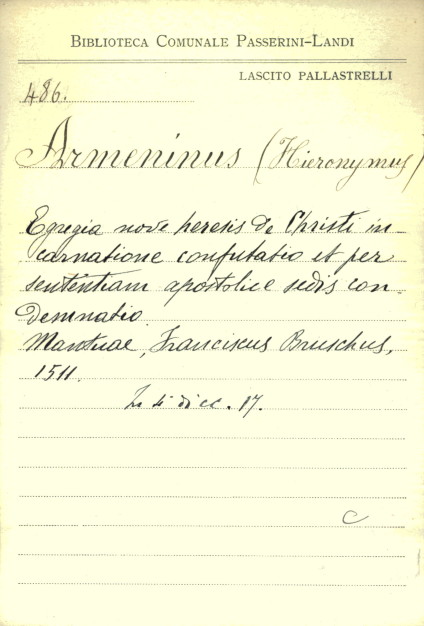 BIBLIOTECA COMUNALE PASSERINI-LANDI
LASCITO PALLASTRELLI
486.
Armeninus (Hieronymus)
Egregia nove heresis de Christi in-
carnatione confutatio et per
sententiam apostolice sedis con-
demnatio.
Mantuae, Franciscus Bruschus,
1511.
In 4° di cc. 17.
C